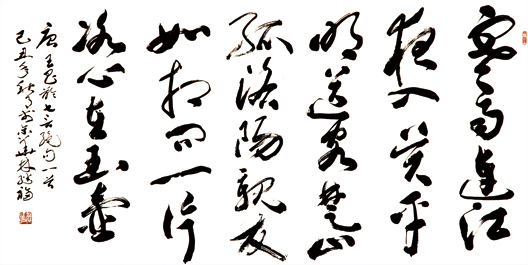 寒雨连江
夜入吴平
明送客楚山
孤洛阳亲友
如相问一片
冰心在玉壶
唐王昌龄七言绝句一首
己丑年秋月